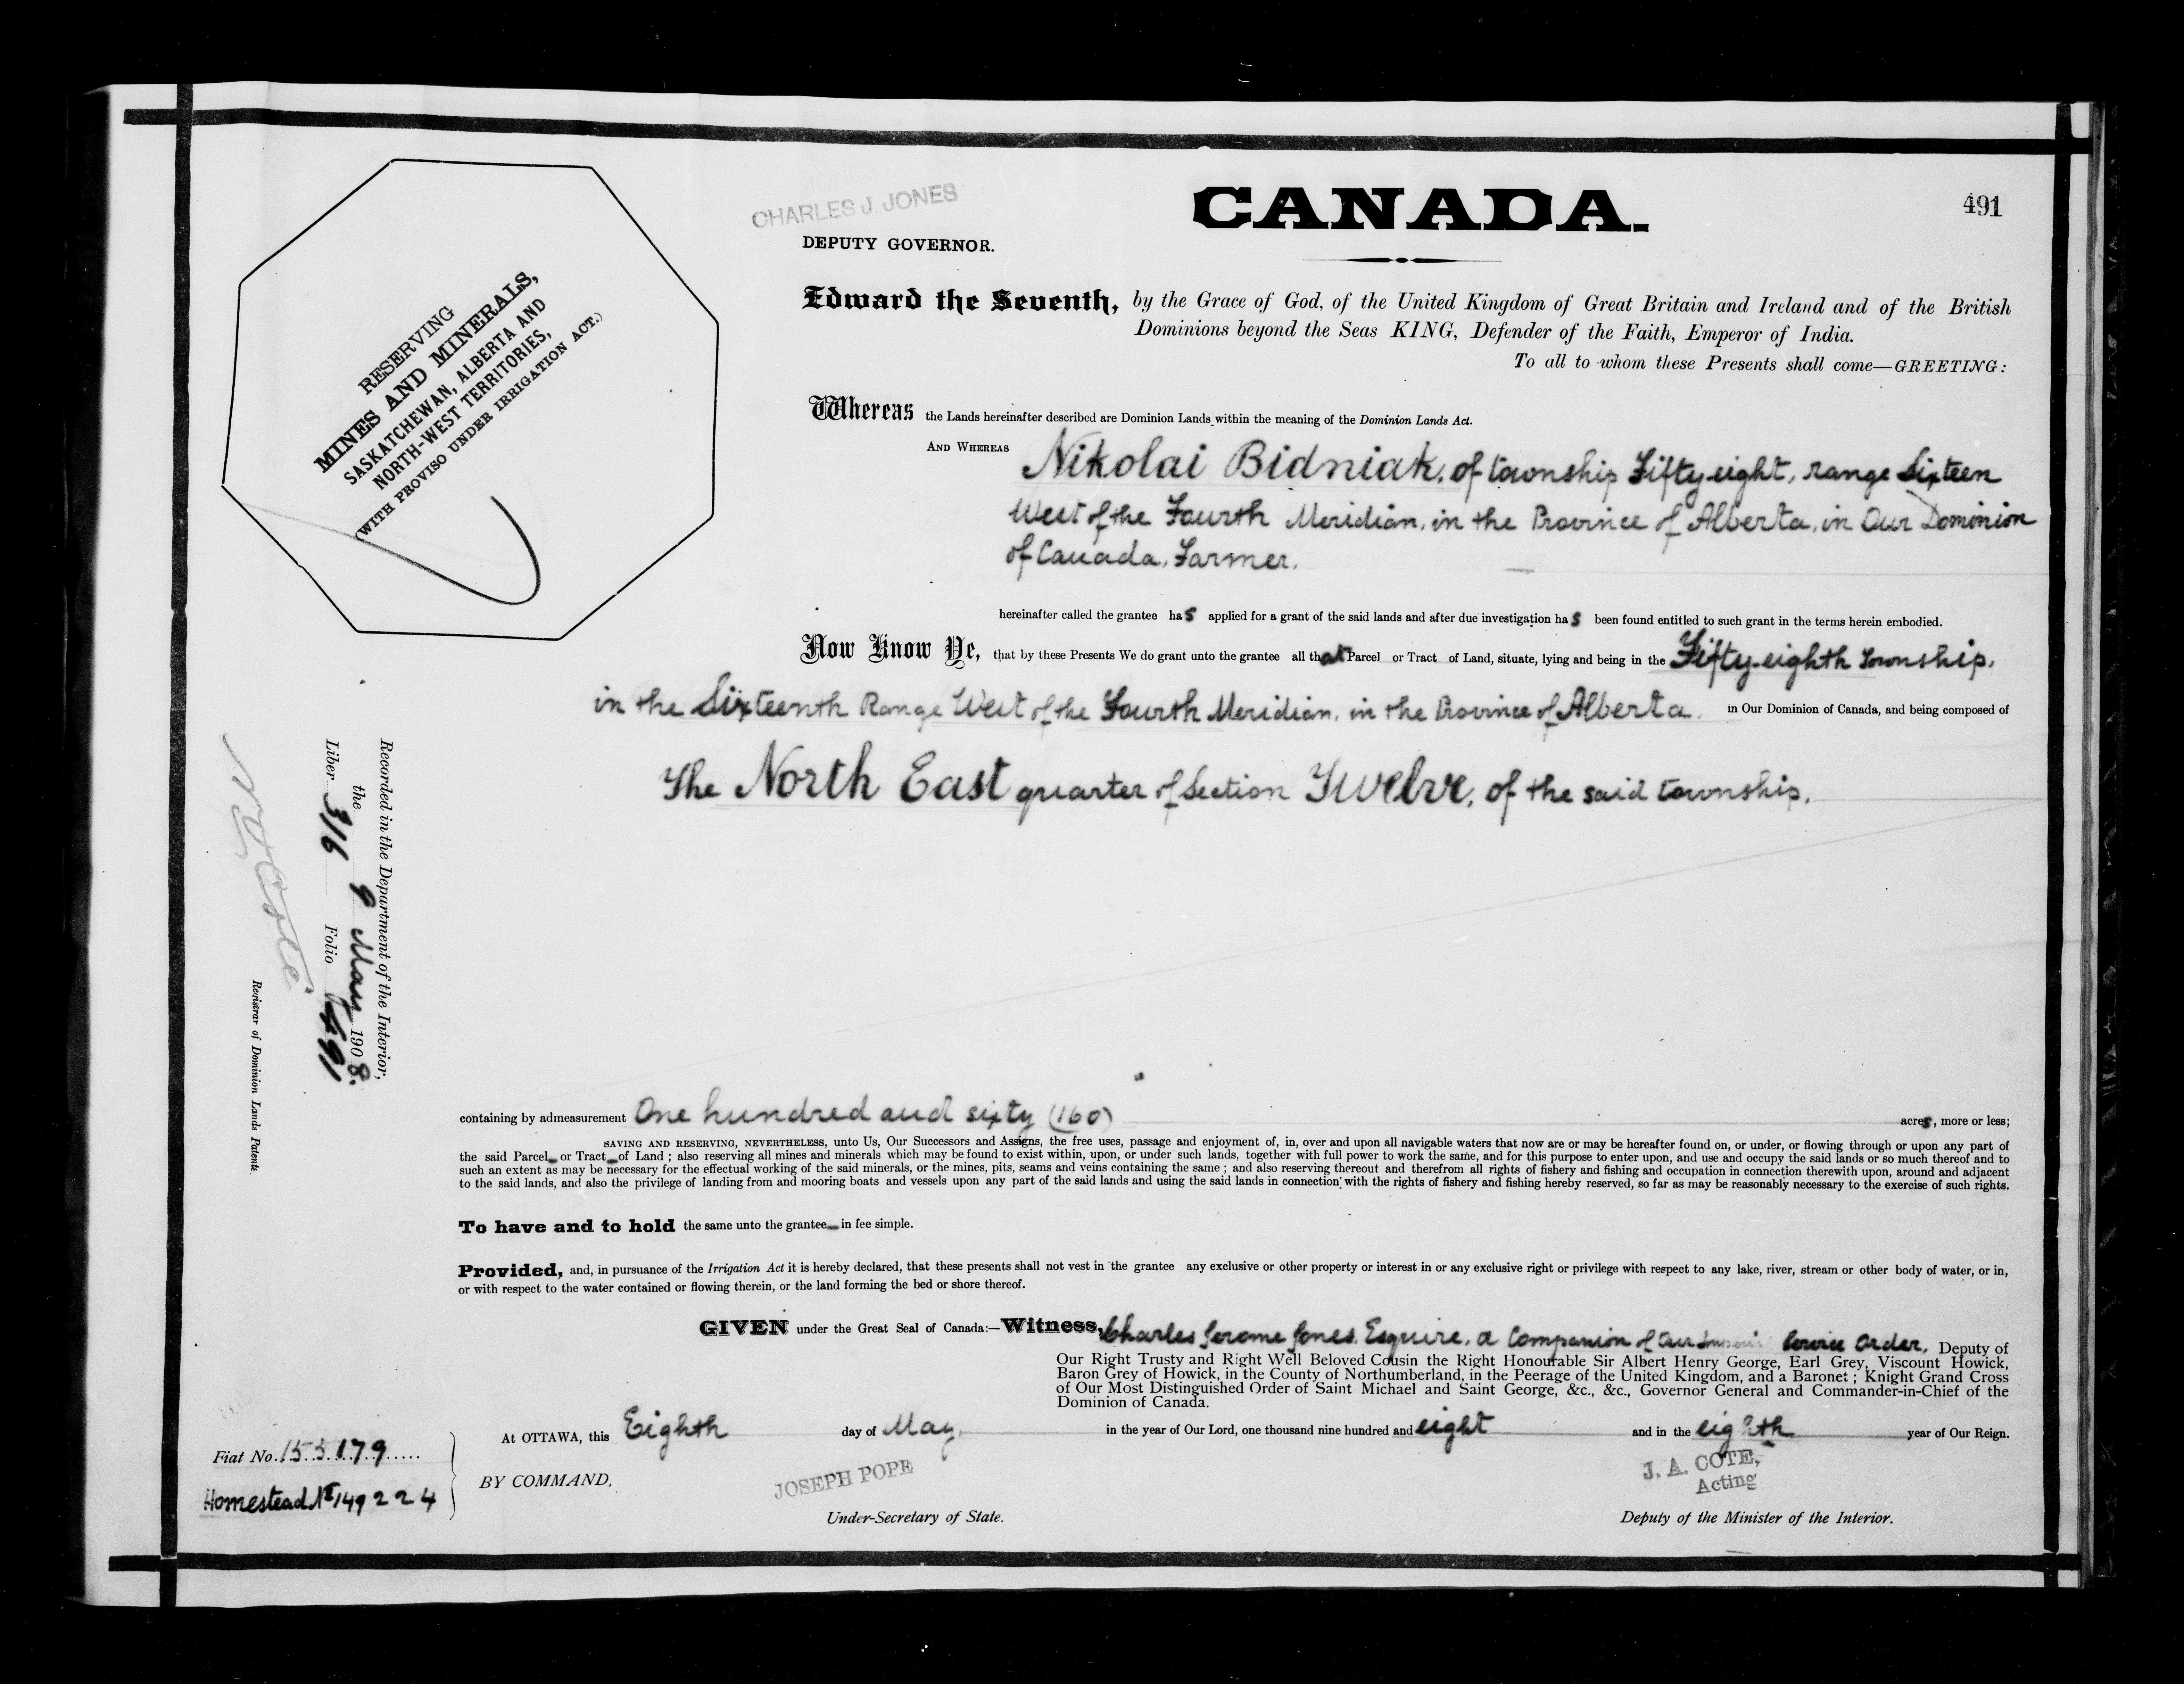 CANADA.
491
CHARLES J. JONES
DEPUTY GOVERNOR.
RESERVING
MINES AND MINERALS,
SASKATCHEWAN, ALBERTA AND
NORTH-WEST TERRITORIES,
(WITH PROVISO UNDER IRRIGATION ACT.)
Edward the Seventh, by the Grace of God, of the United Kingdom of Great Britain and Ireland and of the British
Dominions beyond the Seas KING, Defender of the Faith, Emperor of India.
To all to whom these Presents shall come—GREETING:
Whereas the Lands hereinafter described are Dominion Lands within the meaning of the Dominion Lands Act.
AND WHEREAS Nikolai Bidniak, of township Fifty-eight, range Sixteen
West of the Fourth Meridian, in the Province of Alberta, in Our Dominion
of Canada, Farmer.
hereinafter called the grantee has applied for a grant of the said lands and after due investigation has been found entitled to such grant in the terms herein embodied.
Now Know Ye, that by these Presents We do grant unto the grantee all that Parcel or Tract of Land, situate, lying and being in the Fifty-eighth Township,
in the Sixteenth Range West of the Fourth Meridian, in the Province of Alberta, in Our Dominion of Canada, and being composed of
The North East quarter of Section Twelve, of the said township.
Recorded in the Department of the Interior,
the 9 May 1908.
Liber 316 Folio 491
Registrar of Dominion Lands Patents.
containing by admeasurement One hundred and sixty (160) acres, more or less;
SAVING AND RESERVING, NEVERTHELESS, unto Us, Our Successors and Assigns, the free uses, passage and enjoyment of, in, over and upon all navigable waters that now are or may be hereafter found on, or under, or flowing through or upon any part of
the said Parcel or Tract of Land; also reserving all mines and minerals which may be found to exist within, upon, or under such lands, together with full power to work the same, and for this purpose to enter upon, and use and occupy the said lands or so much thereof and to
such an extent as may be necessary for the effectual working of the said minerals, or the mines, pits, seams and veins containing the same; and also reserving thereout and therefrom all rights of fishery and fishing and occupation in connection therewith upon, around and adjacent
to the said lands, and also the privilege of landing from and mooring boats and vessels upon any part of the said lands and using the said lands in connection with the rights of fishery and fishing hereby reserved, so far as may be reasonably necessary to the exercise of such rights.
To have and to hold the same unto the grantee in fee simple.
Provided, and, in pursuance of the Irrigation Act it is hereby declared, that these presents shall not vest in the grantee any exclusive or other property or interest in or any exclusive right or privilege with respect to any lake, river, stream or other body of water, or in,
or with respect to the water contained or flowing therein, or the land forming the bed or shore thereof.
GIVEN under the Great Seal of Canada:—Witness, Charles Jerome Jones, Esquire, a Companion of Our Imperial Service Order, Deputy of
Our Right Trusty and Right Well Beloved Cousin the Right Honourable Sir Albert Henry George, Earl Grey, Viscount Howick,
Baron Grey of Howick, in the County of Northumberland, in the Peerage of the United Kingdom, and a Baronet; Knight Grand Cross
of Our Most Distinguished Order of Saint Michael and Saint George, &c., &c., Governor General and Commander-in-Chief of the
Dominion of Canada.
At OTTAWA, this Eighth day of May, in the year of Our Lord, one thousand nine hundred and eight and in the eighth year of Our Reign.
Fiat No. 155179
Homestead No 149224
BY COMMAND,
JOSEPH POPE
Under-Secretary of State.
J. A. COTE,
Acting
Deputy of the Minister of the Interior.